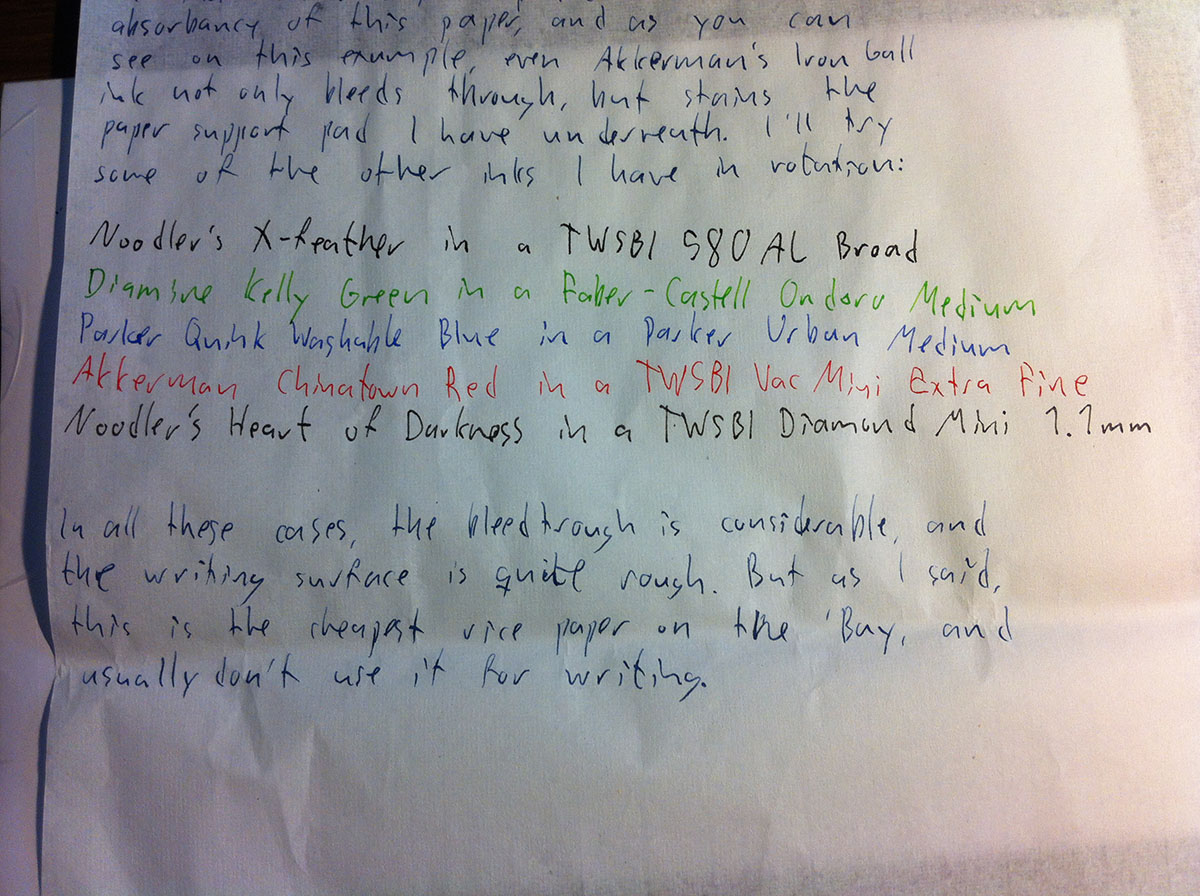 absorbancy of this paper, and as you can
see on this example, even Akkerman's Iron Gall
ink not only bleeds through, but stains the
paper support pad I have underneath. I'll try
some of the other inks I have in rotation:
Noodler's X-Feather in a TWSBI 580 AL Broad
Diamine Kelly Green in a Faber-Castell Ondoro Medium
Parker Quink Washable Blue in a Parker Urban Medium
Akkerman Chinatown Red in a TWSBI Vac Mini Extra Fine
Noodler's Heart of Darkness in a TWSBI Diamond Mini 1.1mm
In all these cases, the bleedtrough is considerable, and
the writing surface is quite rough. But as I said,
this is the cheapest rice paper on the 'Bay, and
usually don't use it for writing.